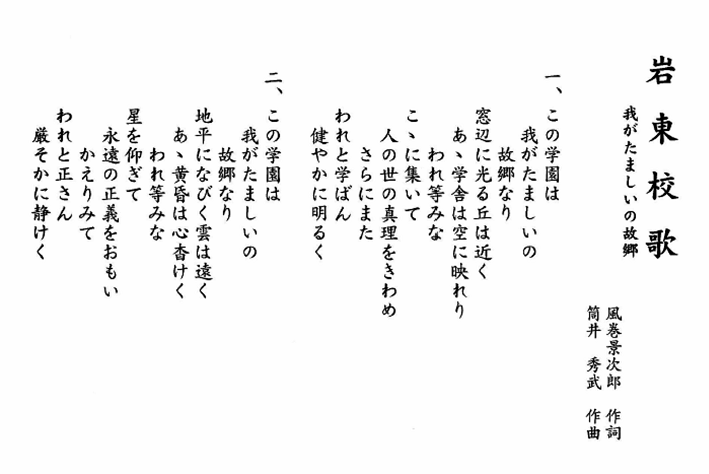 岩東校歌
我がたましいの故郷
風巻景次郎 作詞
筒井 秀武 作曲
一、この学園は
我がたましいの
故郷なり
窓辺に光る丘は近く
あゝ学舎は空に映れり
われ等みな
こゝに集いて
人の世の真理をきわめ
さらにまた
われと学ばん
健やかに明るく
二、この学園は
我がたましいの
故郷なり
地平になびく雲は遠く
あゝ黄昏は心杳けく
われ等みな
星を仰ぎて
永遠の正義をおもい
かえりみて
われと正さん
厳そかに静けく